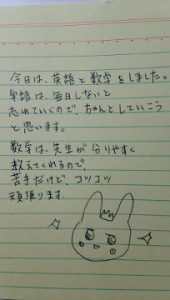 今日は、英語と数学をしました。
英語は、毎日しないと
忘れていくので、ちゃんとしていこう
と思います。
数学は、先生が分りやすく
教えてくれるので、
苦手だけど、コツコツ
頑張ります。